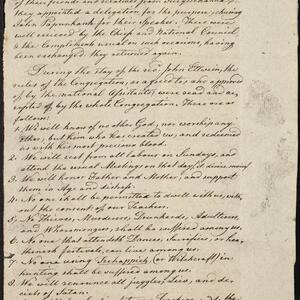 of their friends and relations from
they appointed a delegation for the purpose, choosing
John Papunhank for their Speaker. These were
well received by the Chief and National Council
& the Compliments usual on such occasions, having
been exchanged, they returned again.
During the stay of the revd John Ettwein, the
rules of the Congregation, as far as and approved
of by the National Assistants were read and ac-
cepted of by the whole Congregation. These are as
follows:
1. We will know of no other God, nor worship any
other, but him who has created us, and redeemed
us with his most precious blood.
2. We will rest of all labour on Sundays, and
attend the usual Meetings on that day,
3. We will honor Father and Mother, and support
them in Age and distress.
4. No one shall be permitted to dwell with us, with-
out the consent of our Teachers.
5. No Thieves, Murderers, Drunkards, Adulterers,
and Whoremongers, shall be suffered among us.
6. No one that attendeth Dances, Sacrifices, or hea-
thenish festivals, can live among us.
7. No one using Tschappich (or Witchcraft) in
hunting shall be suffered among us.
8. We will renounce all juggles, lies, and de-
ceits of Satan.